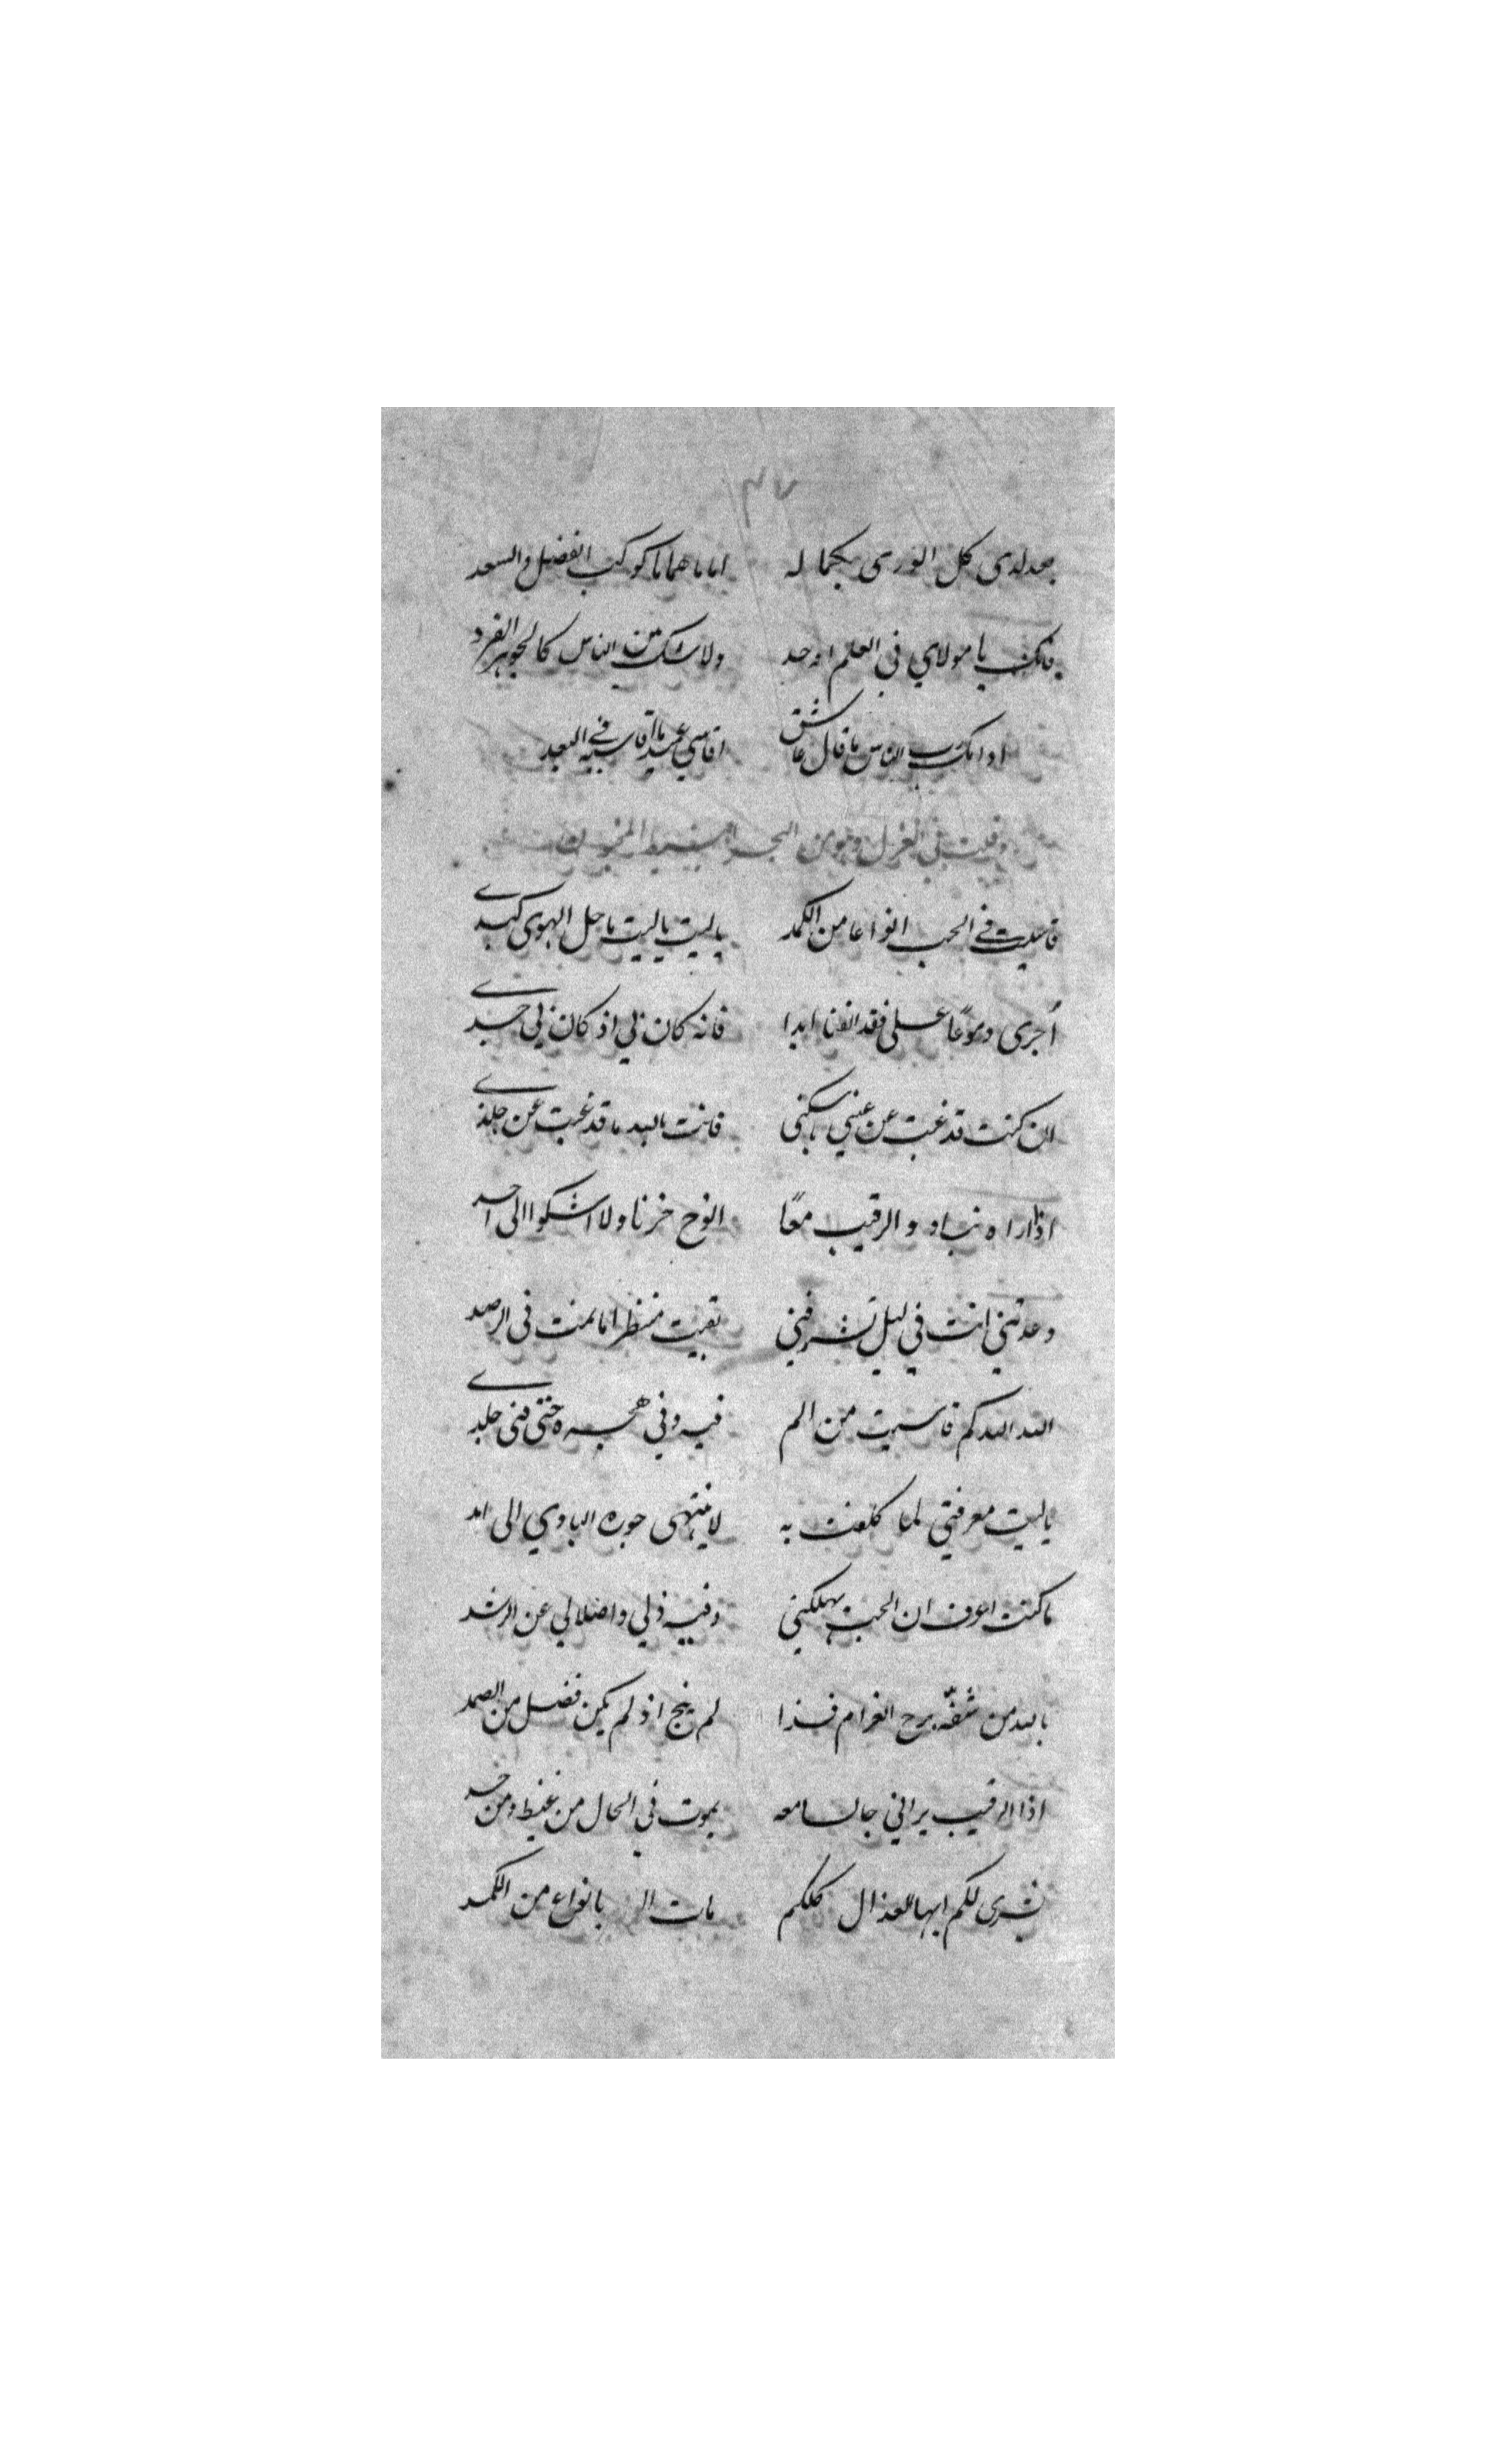 ٣٧
لدى كل الورى بكماله اماما هماما كوكب الفضل والسعد
فانك يا مولاي في العلم اوحد ولا شك من الناس كالجوهر الفرد
الناس ما قال عاشق اقاسي عميد ما اقاسيه في البعد
وقلت في الغزل وهو من البحر البسيط المخبون
قاسيت في الحب انواعا من الكمد يا ليت يا ليت ما حل الهوى كبدي
أجرى دموعًا على فقد الفنا ابدا فانه كان لي اذ كان لي جسدي
ان كنت قد غبت عن عيني يا سكني فانت بالله ما قد غبت عن خلدي
اذا اراه والرقيب معًا انوح حزنا ولا اشكوا الى احد
وعدتني انت في ليل تشرفني بقيت منتظرا ما نمت في الرصد
الله الله كم قاسيت من الم فيه وفي هجره حتى فنى جلدي
يا ليت معرفتي لما كلفت به لا ينتهى جوره البادي الى امد
ما كنت اعرف ان الحب يهلكني وفيه ذلي واضلالي عن الرشد
بالله من شفّه برح الغرام فذا لم ينج اذ لم يكن فضل من الصمد
اذا الرقيب يراني جالسا معه يموت في الحال من غيظ ومن حسد
بشرى لكم ايها العذال كلكم مات بانواع من الكمد